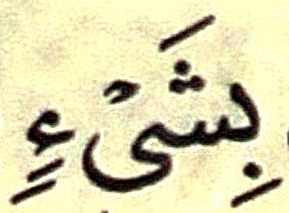 بِشَىْءٍ